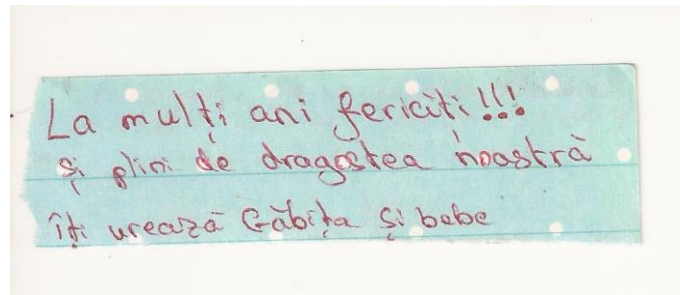 La mulți ani fericiți!!!
și plini de dragostea noastră
îți urează Găbița și bebe